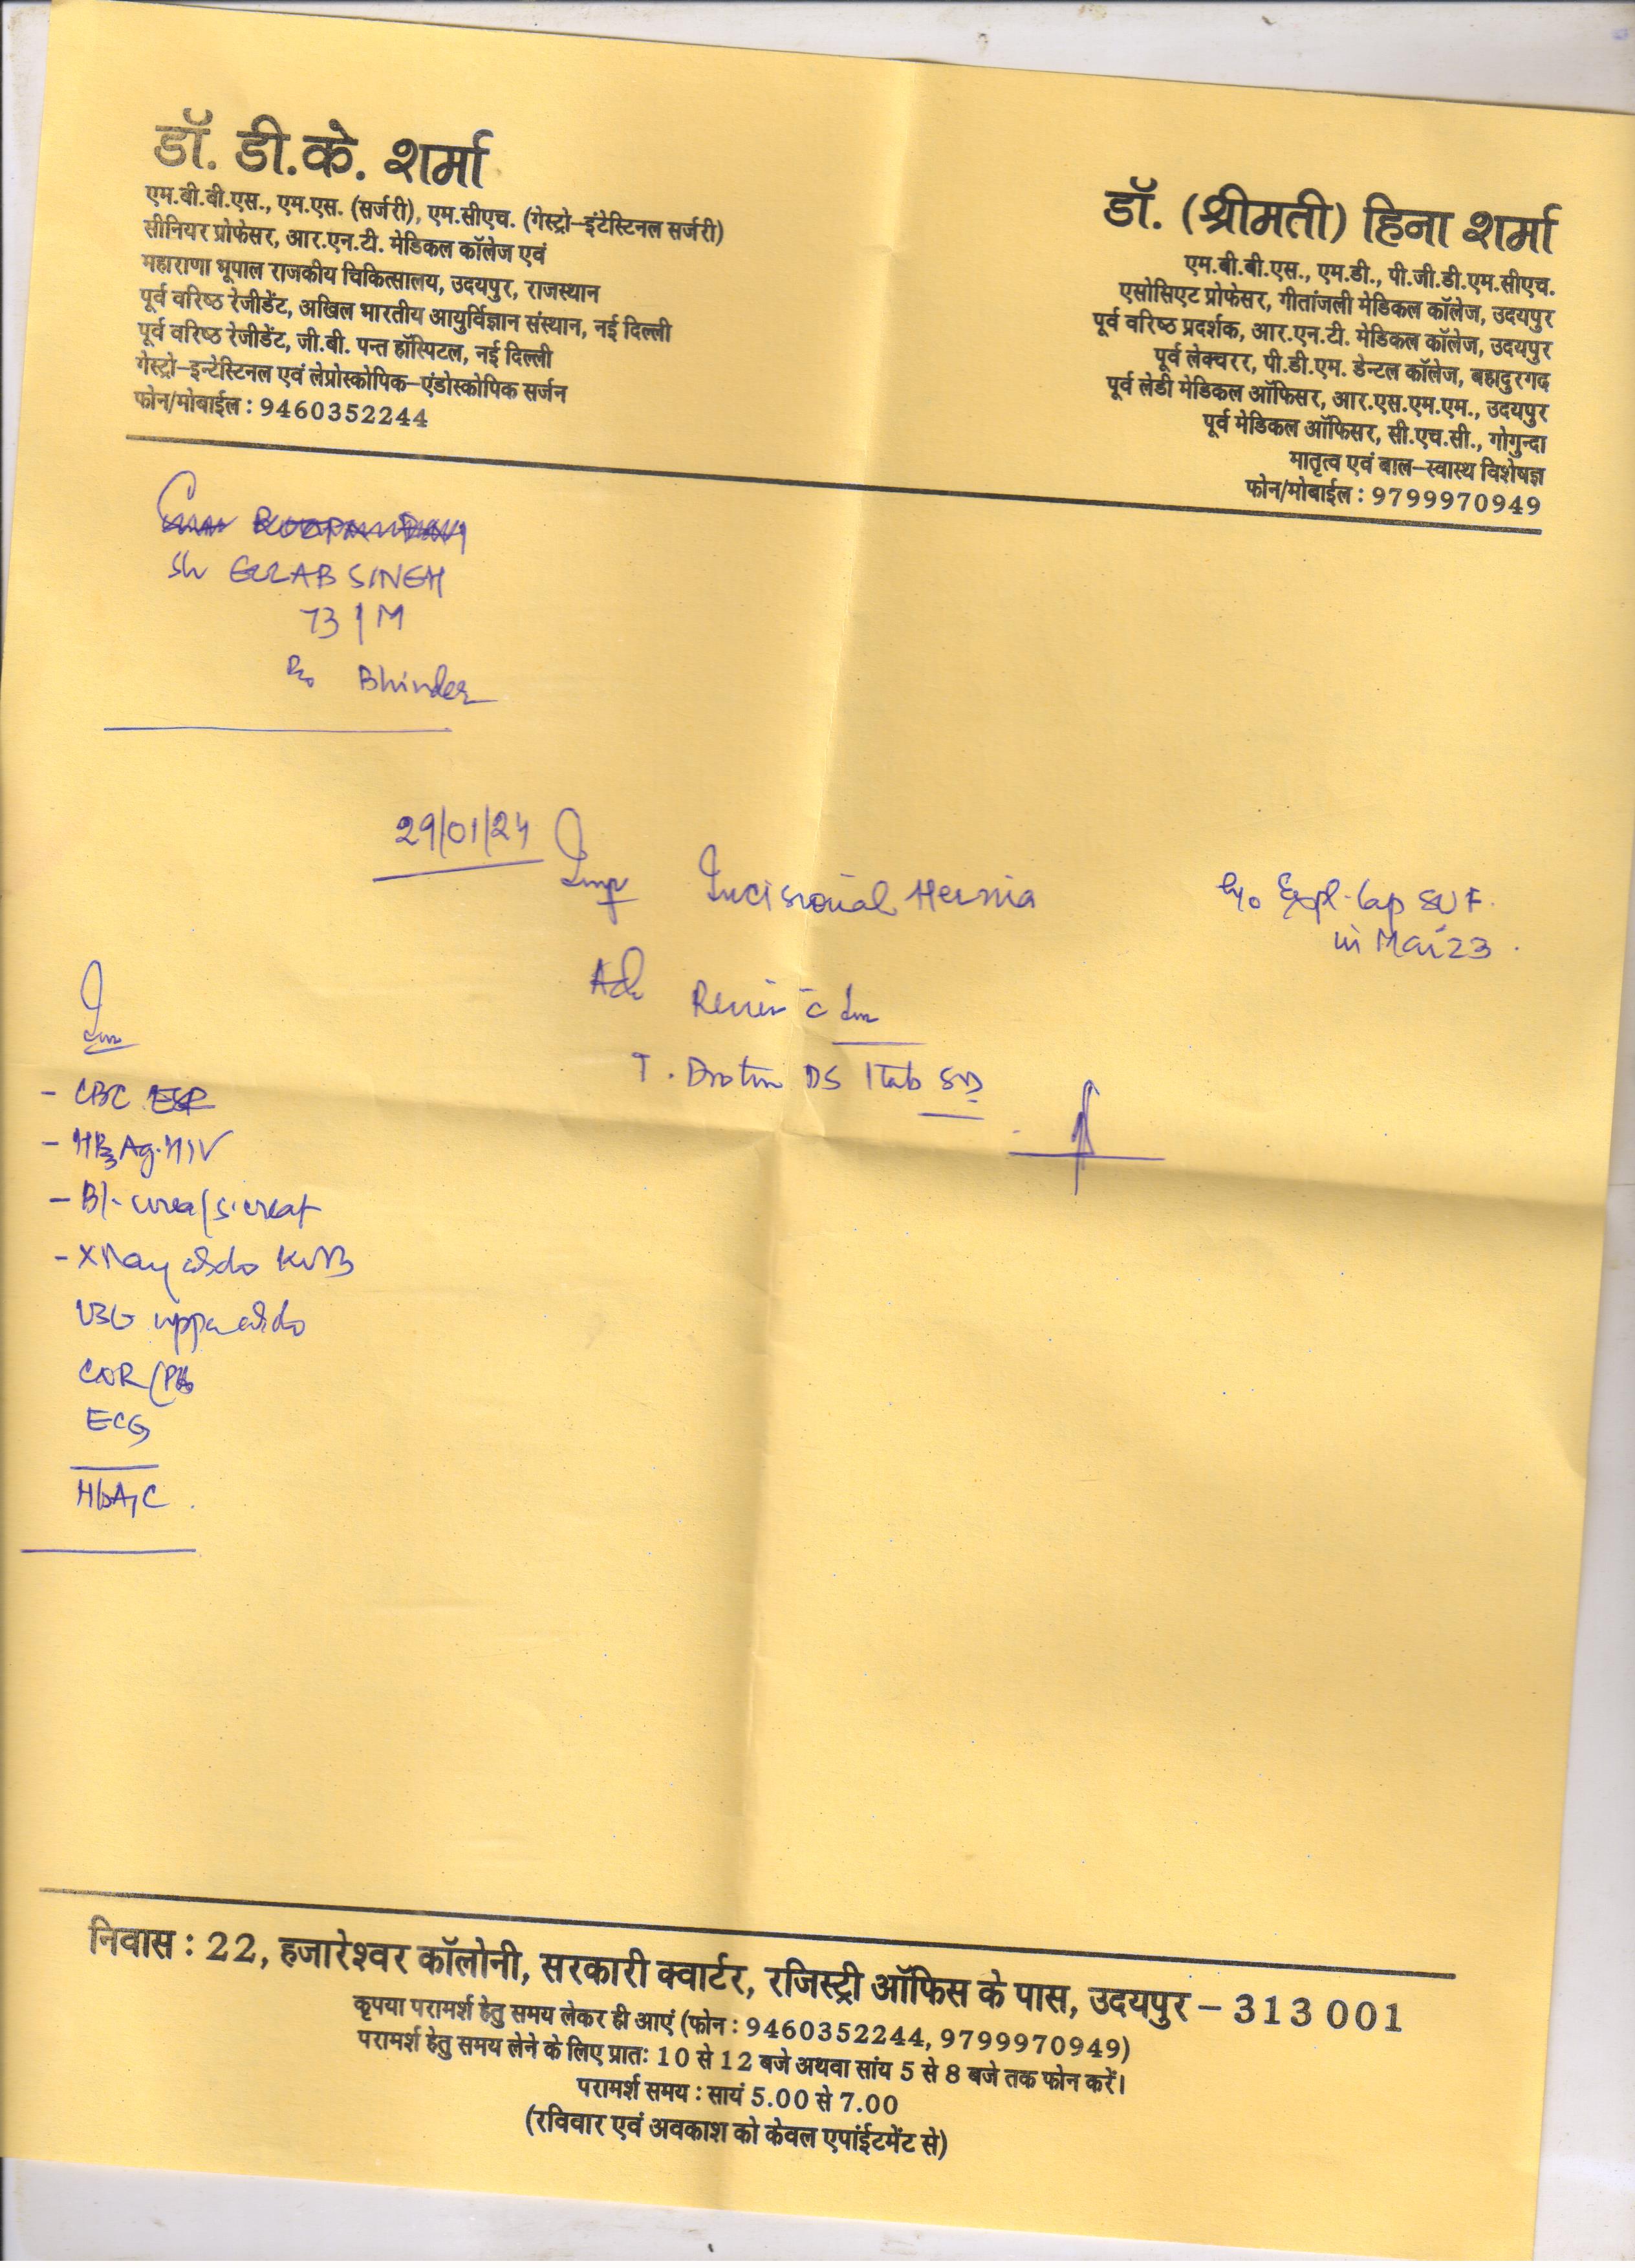 डॉ. डी.के. शर्मा
एम.बी.बी.एस., एम.एस. (सर्जरी), एम.सीएच. (गेस्ट्रो-इंटेस्टिनल सर्जरी)
सीनियर प्रोफेसर, आर.एन.टी. मेडिकल कॉलेज एवं
महाराणा भूपाल राजकीय चिकित्सालय, उदयपुर, राजस्थान
पूर्व वरिष्ठ रेजीडेंट, अखिल भारतीय आयुर्विज्ञान संस्थान, नई दिल्ली
पूर्व वरिष्ठ रेजीडेंट, जी.बी. पन्त हॉस्पिटल, नई दिल्ली
गेस्ट्रो-इन्टेस्टिनल एवं लेप्रोस्कोपिक-एंडोस्कोपिक सर्जन
फोन/मोबाईल : 9460352244
डॉ. (श्रीमती) हिना शर्मा
एम.बी.बी.एस., एम.डी., पी.जी.डी.एम.सीएच.
एसोसिएट प्रोफेसर, गीतांजली मेडिकल कॉलेज, उदयपुर
पूर्व वरिष्ठ प्रदर्शक, आर.एन.टी. मेडिकल कॉलेज, उदयपुर
पूर्व लेक्चरर, पी.डी.एम. डेन्टल कॉलेज, बहादुरगढ
पूर्व लेडी मेडिकल ऑफिसर, आर.एस.एम.एम., उदयपुर
पूर्व मेडिकल ऑफिसर, सी.एच.सी., गोगुन्दा
मातृत्व एवं बाल-स्वास्थ विशेषज्ञ
फोन/मोबाईल : 9799970949
GULAB SINGH
73/M
R/o Bhinder
29/01/24 Imp Incisional Hernia
H/o Expl. Lap
in Mar'23.
Adv Review c Inv
T. DS 1 tab
Inv
- CBC ESR
- HBsAg. HIV
- Bl. urea/S. creat
- X Ray abdo KUB
USG upper abdo
CXR (PA)
ECG
HbA1C.
निवास : 22, हजारेश्वर कॉलोनी, सरकारी क्वार्टर, रजिस्ट्री ऑफिस के पास, उदयपुर – 313 001
कृपया परामर्श हेतु समय लेकर ही आएं (फोन : 9460352244, 9799970949)
परामर्श हेतु समय लेने के लिए प्रातः 10 से 12 बजे अथवा सांय 5 से 8 बजे तक फोन करें।
परामर्श समय : सायं 5.00 से 7.00
(रविवार एवं अवकाश को केवल एपांईटमेंट से)